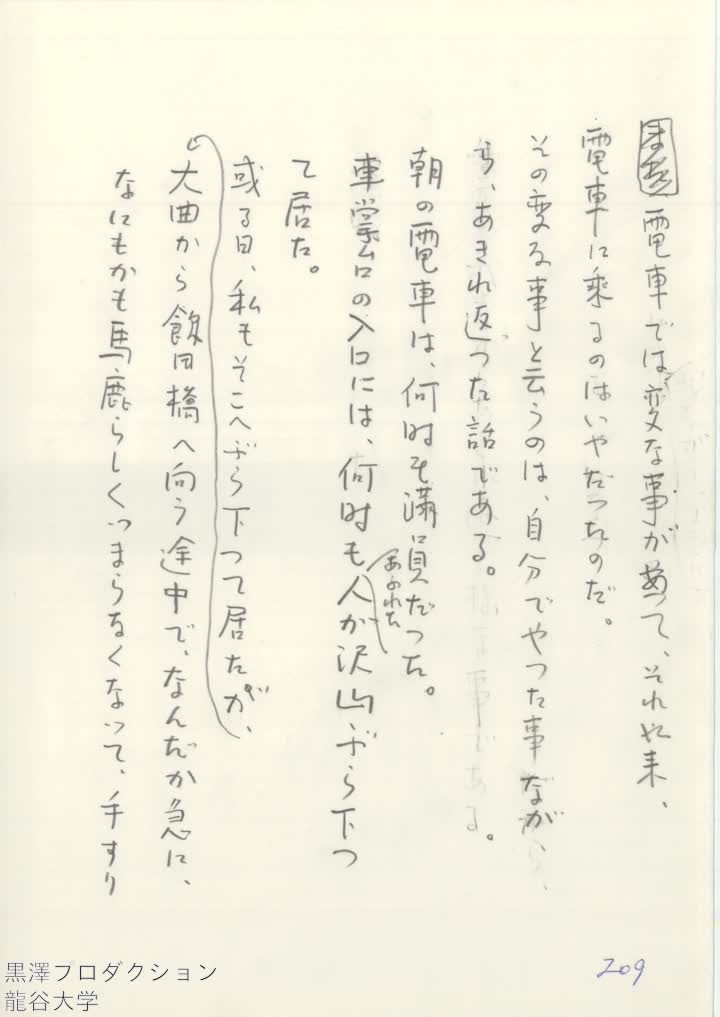 まあ電車では変な事があって、それ以来、
電車に乗るのはいやだったのだ。
その変な事と云うのは、自分でやった事なが
ら、あきれ返った話である。
朝の電車は、何時も満員だった。
あふれた
車掌台の入口には、何時も人が沢山ぶら下っ
て居た。
或る日、私もそこへぶら下って居たが、
大曲から飯田橋へ向う途中で、なんだか急に、
なにもかも馬鹿らしくつまらなくなって、手すり
209
黒澤プロダクション
龍谷大学